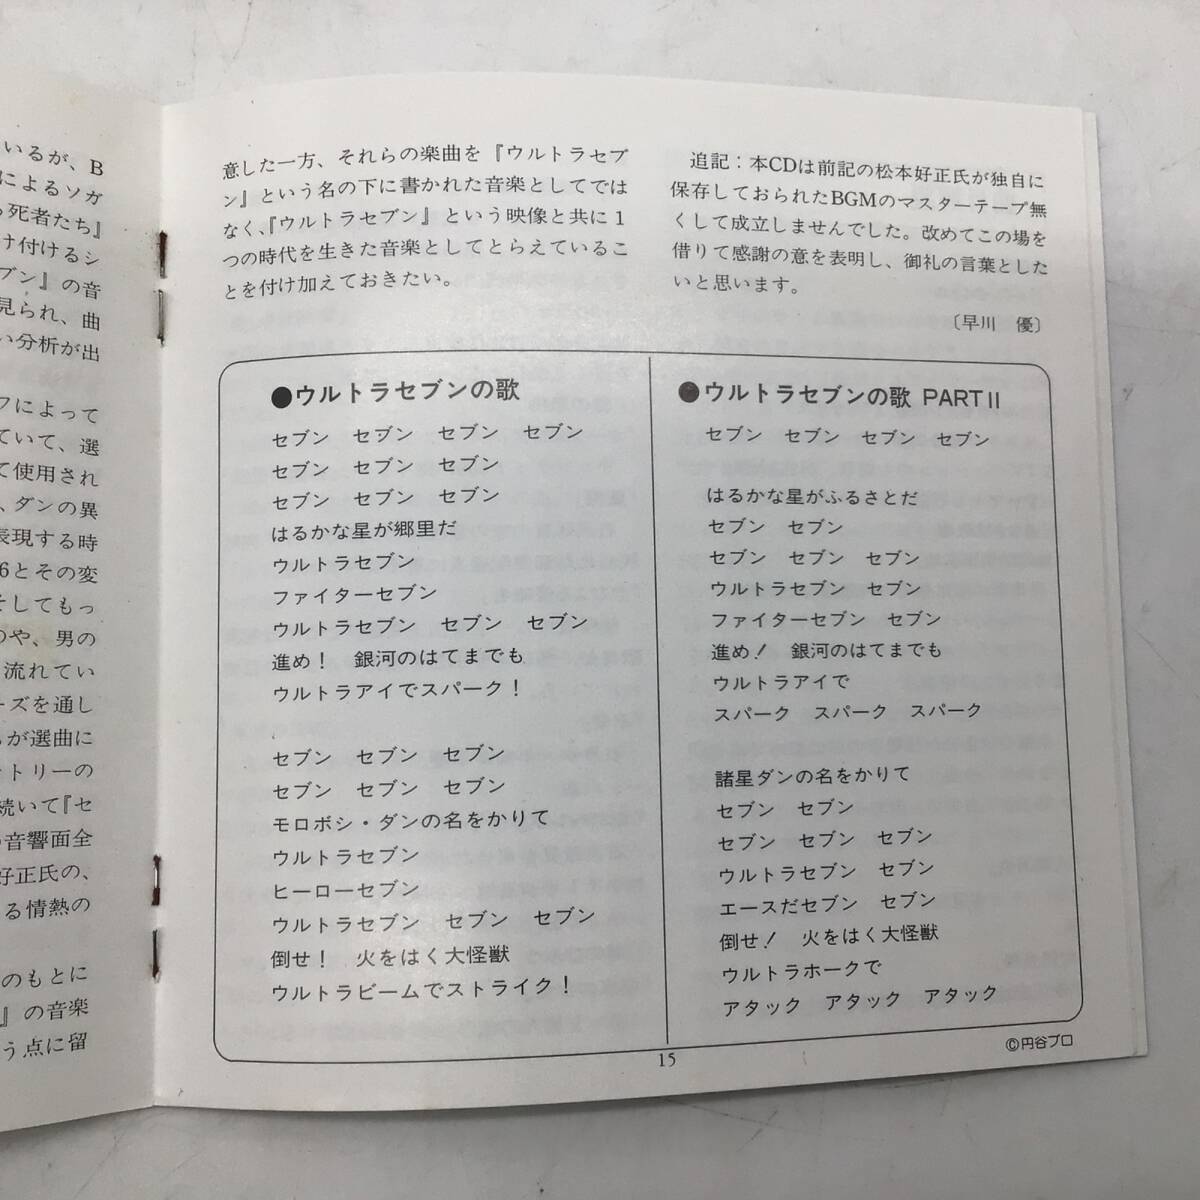 いるが、B
によるソガ
る死者たち』
け付けるシ
ブン』の音
見られ、曲
い分析が出
フによって
ていて、選
て使用され
、ダンの異
表現する時
6とその変
そしてもっ
のや、男の
流れてい
ーズを通し
らが選曲に
ントリーの
続いて『セ
の音響面全
好正氏の、
る情熱の
のもとに
』の音楽
う点に留
意した一方、それらの楽曲を『ウルトラセブ
ン』という名の下に書かれた音楽としてでは
なく、『ウルトラセブン』という映像と共に1
つの時代を生きた音楽としてとらえているこ
とを付け加えておきたい。
追記：本CDは前記の松本好正氏が独自に
保存しておられたBGMのマスターテープ無
くして成立しませんでした。改めてこの場を
借りて感謝の意を表明し、御礼の言葉とした
いと思います。
〔早川　優〕
●ウルトラセブンの歌
セブン　セブン　セブン　セブン
セブン　セブン　セブン
セブン　セブン　セブン
はるかな星が郷里だ
ウルトラセブン
ファイターセブン
ウルトラセブン　セブン　セブン
進め！　銀河のはてまでも
ウルトラアイでスパーク！
セブン　セブン　セブン
セブン　セブン　セブン
モロボシ・ダンの名をかりて
ウルトラセブン
ヒーローセブン
ウルトラセブン　セブン　セブン
倒せ！　火をはく大怪獣
ウルトラビームでストライク！
●ウルトラセブンの歌 PART II
セブン　セブン　セブン　セブン
はるかな星がふるさとだ
セブン　セブン
セブン　セブン　セブン
ウルトラセブン　セブン
ファイターセブン　セブン
進め！　銀河のはてまでも
ウルトラアイで
スパーク　スパーク　スパーク
諸星ダンの名をかりて
セブン　セブン
セブン　セブン　セブン
ウルトラセブン　セブン
エースだセブン　セブン
倒せ！　火をはく大怪獣
ウルトラホークで
アタック　アタック　アタック
©円谷プロ
15